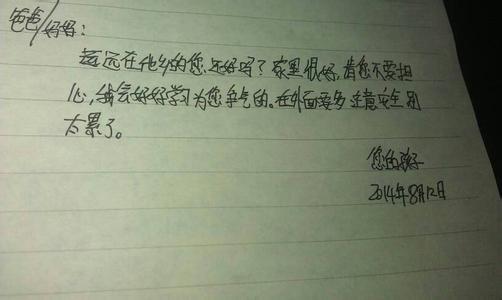 爸爸/妈妈：
远在他乡的您还好吗？家里很好，请您不要担
心，我会好好学习为您争气的。在外面要多注意安全别
太累了。
您的孩子
2014年8月12日